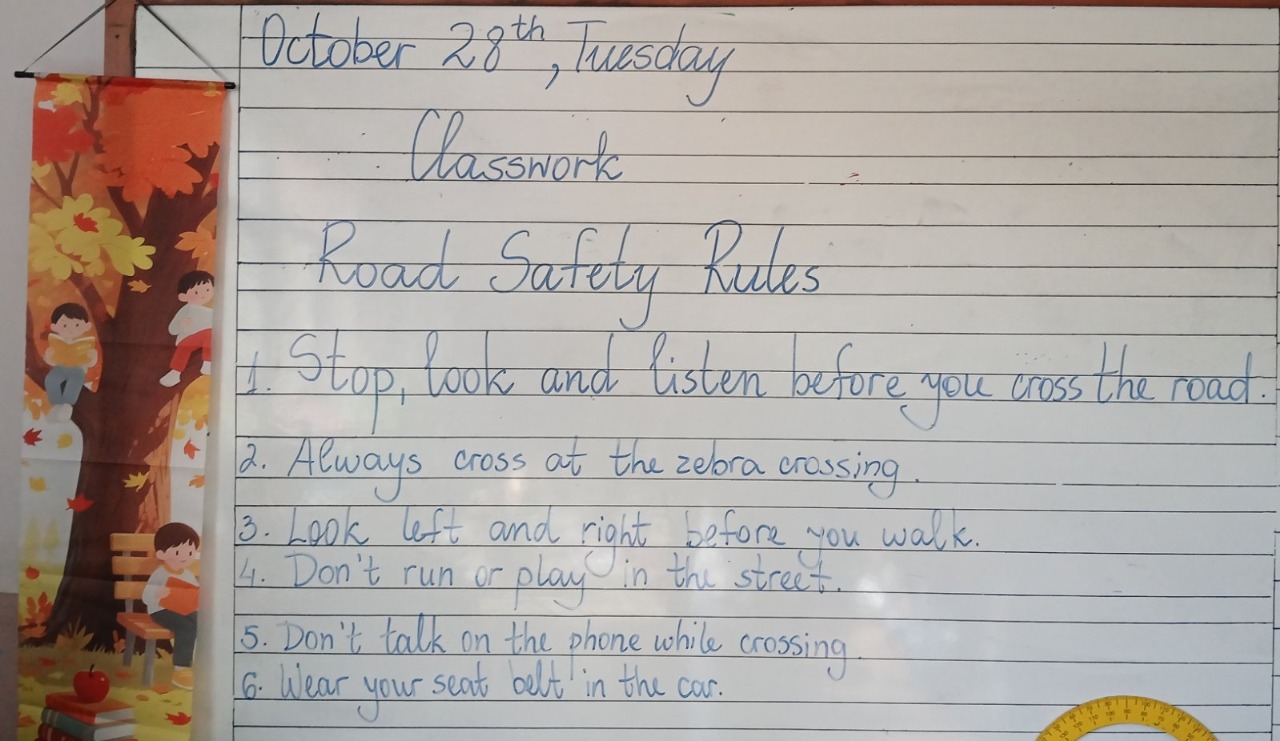 October 28th, Tuesday
Classwork
Road Safety Rules
1. Stop, look and listen before you cross the road.
2. Always cross at the zebra crossing.
3. Look left and right before you walk.
4. Don't run or play in the street.
5. Don't talk on the phone while crossing.
6. Wear your seat belt in the car.